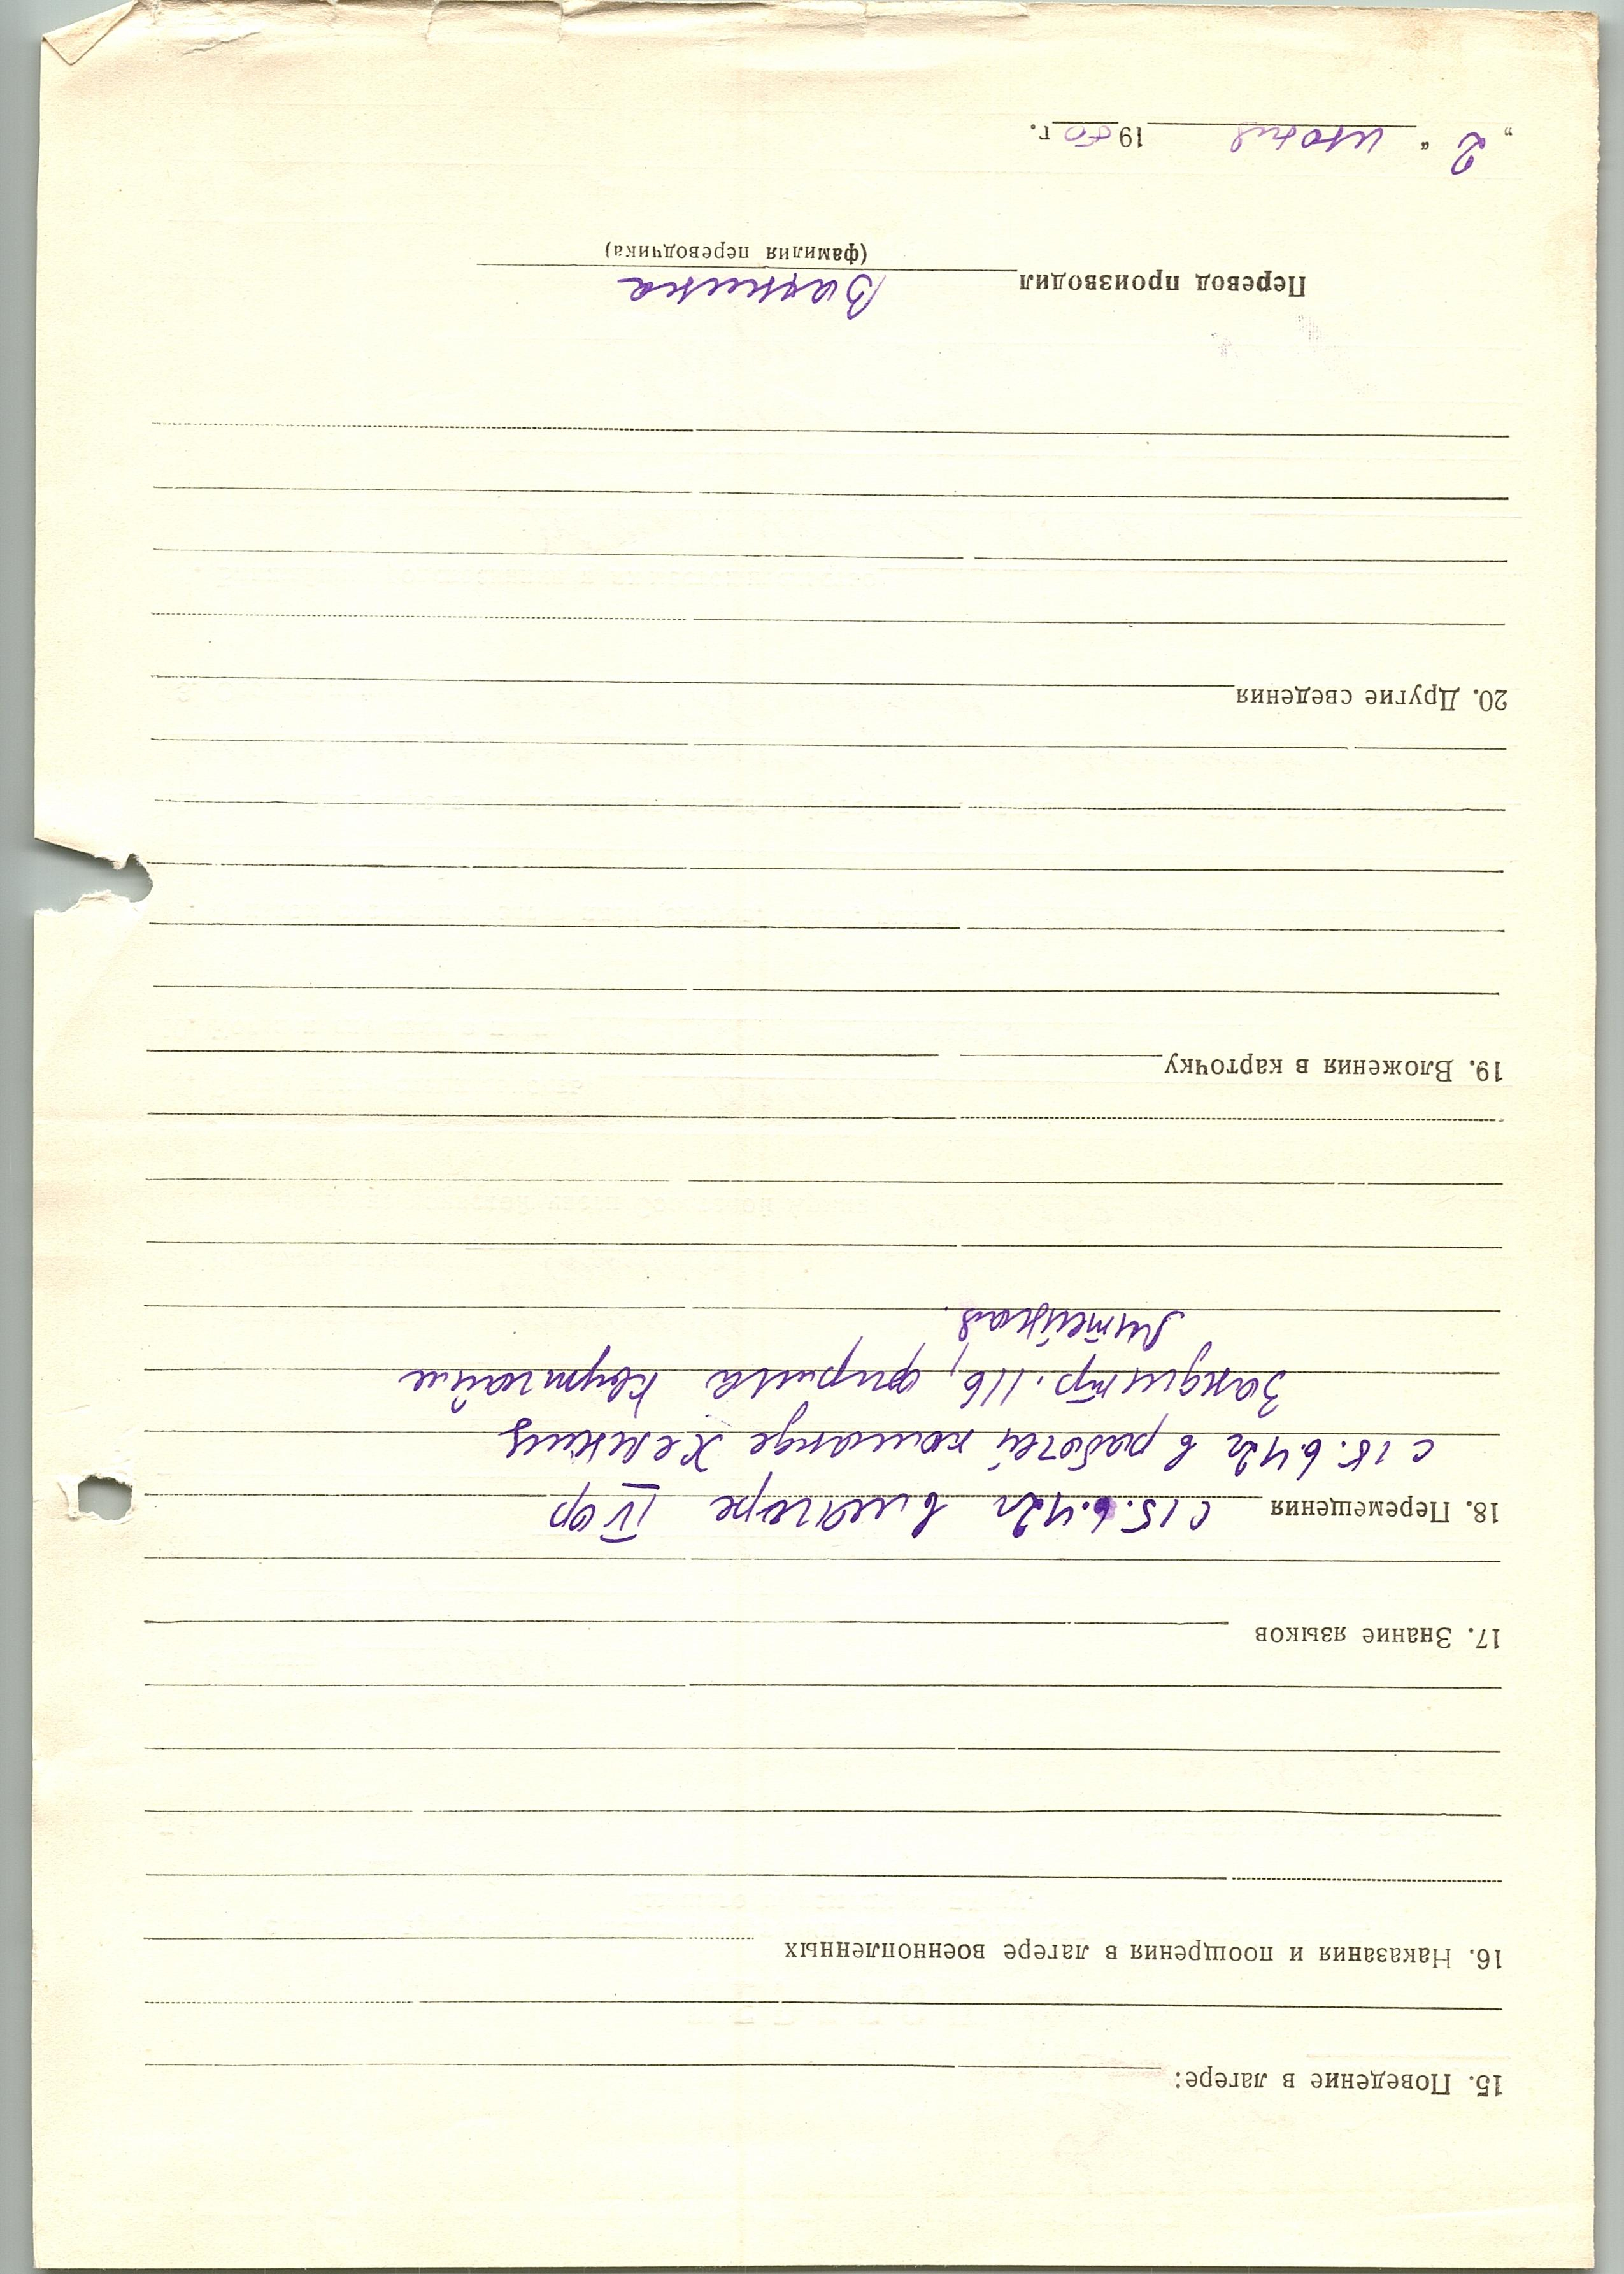 15. Поведение в лагере:
16. Наказания и поощрения в лагере военнопленных
17. Знание языков
18. Перемещения с 15.6.42г в лагере IV ф
с 15.6.42г в рабочей команде Хемниц
Зандштр. 116, фирма
литейная.
19. Вложения в карточку
20. Другие сведения
Перевод производил
(фамилия переводчика)
„ 2 “ июня 1950 г.